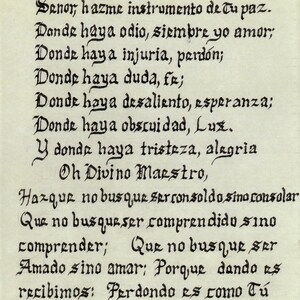 Señor, hazme instrumento de Tu paz.
Donde haya odio, siembre yo amor;
Donde haya injuria, perdón;
Donde haya duda, fe;
Donde haya desaliento, esperanza;
Donde haya obscuidad, Luz.
Y donde haya tristeza, alegria
Oh Divino Maestro,
Haz que no busque ser consoldo sino consolar
Que no busque ser comprendido sino
comprender; Que no busque ser
Amado sino amar; Porque dando es
recibimos: Perdondo es como Tú